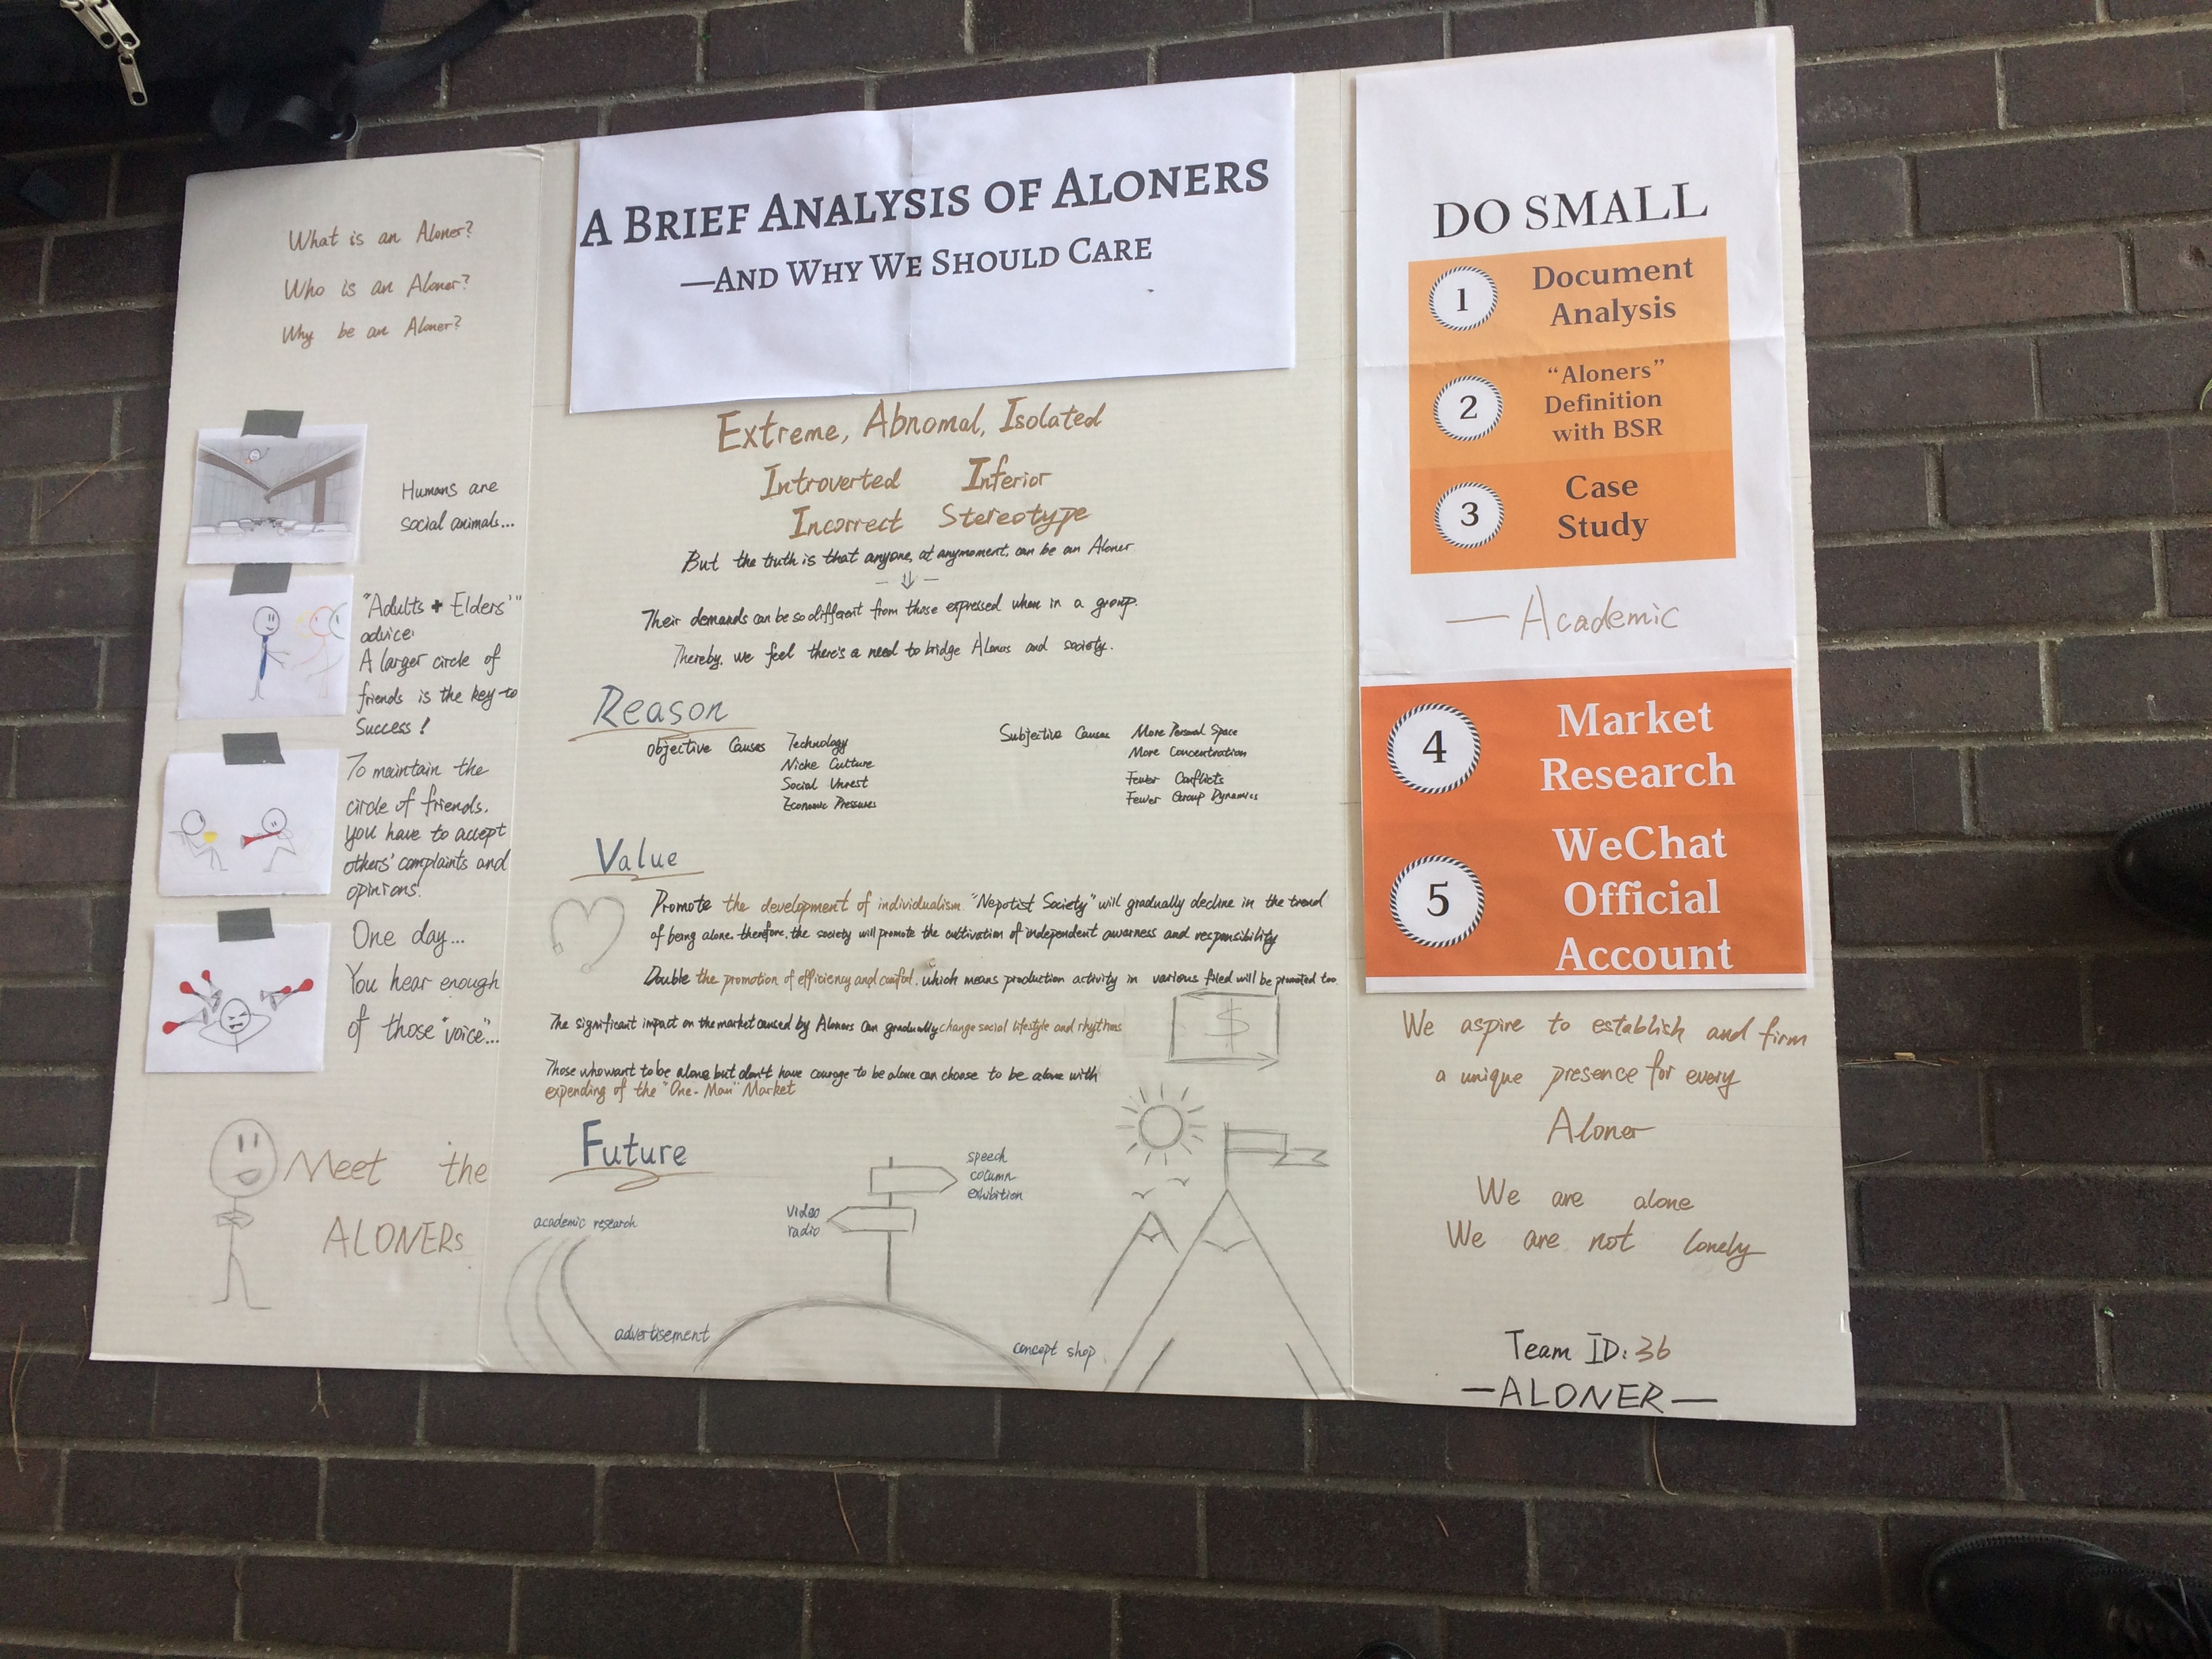 What is an Aloner?
Who is an Aloner?
Why be an Aloner?
Humans are
social animals...
"Adults + Elders'"
advice:
A larger circle of
friends is the key to
Success!
To maintain the
circle of friends,
you have to accept
others' complaints and
opinions!
One day...
You hear enough
of those "voice"...
Meet the
ALONERs
A BRIEF ANALYSIS OF ALONERS
—AND WHY WE SHOULD CARE
Extreme, Abnomal, Isolated
Introverted Inferior
Incorrect Stereotype
But the truth is that anyone, at anymoment, can be an Aloner
Their demands can be so different from those expressed when in a group.
Thereby, we feel there's a need to bridge Aloners and society.
Reason
Objective Causes Technology
Niche Culture
Social Unrest
Economic Pressures
Subjective Causes More Personal Space
More Concentration
Fewer Conflicts
Fewer Group Dynamics
Value
Promote the development of individualism. "Nepotist Society" will gradually decline in the trend
of being alone, therefore, the society will promote the cultivation of independent awarness and responsibility
Double the promotion of efficiency and comfort, which means production activity in various filed will be promoted too.
The significant impact on the market caused by Aloners can gradually change social lifestyle and rhythms
Those who want to be alone but don't have courage to be alone can choose to be alone with
expending of the "One-Man" Market
$
Future
speech
column
exhibition
video
radio
academic research
advertisement
concept shop
DO SMALL
1 Document
Analysis
2 "Aloners"
Definition
with BSR
3 Case
Study
— Academic
4 Market
Research
5 WeChat
Official
Account
We aspire to establish and firm
a unique presence for every
Aloner
We are alone
We are not lonely
Team ID: 36
— ALONER —